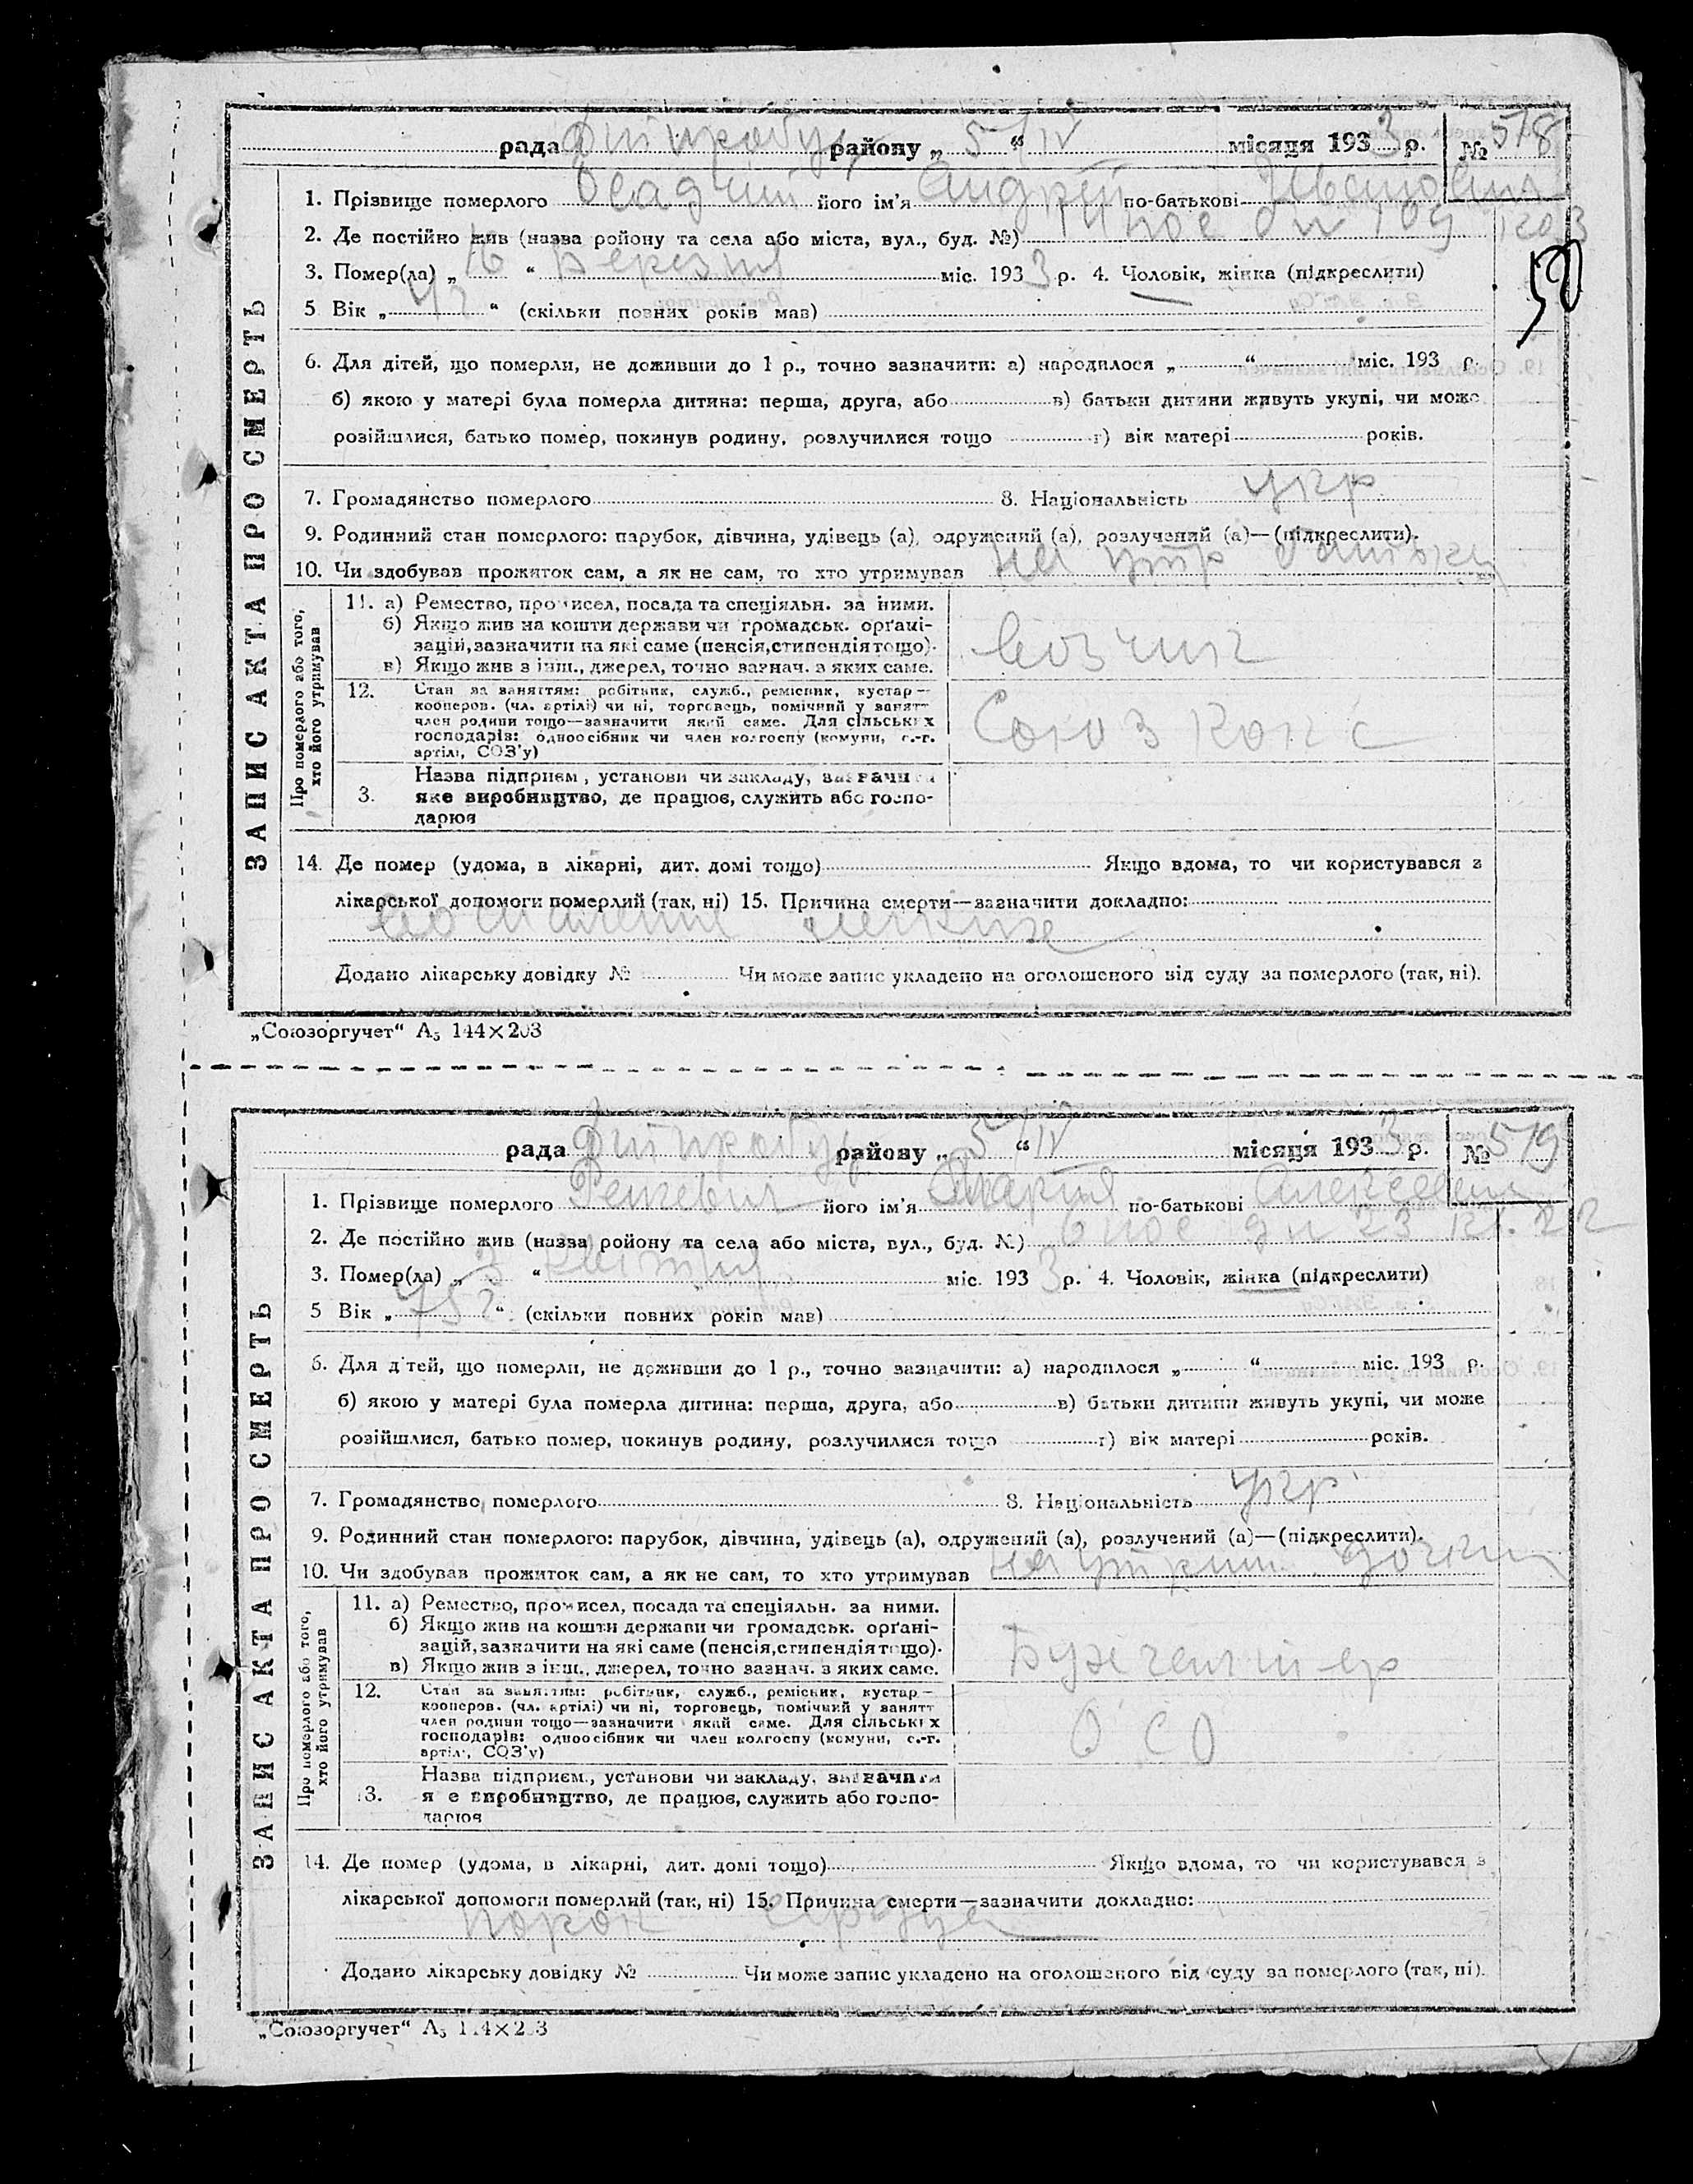 рада районy „ 5/IV “ місяця 1933 р. № 578
1. Прізвище померлого Осадчий його ім'я Андрій по-батькові
2. Де постійно жив (назва ройону та села або міста, вул., буд. №) пос дн 109
3. Помер(ла) „ 16 “ березня міс. 1933 р. 4. Чоловік, жінка (підкреслити)
5 Вік „ “ (скільки повних років мав)
50
6. Для дітей, що померли, не доживши до 1 р., точно зазначити: а) народилося „ “ міс. 193 р.
б) якою у матері була померла дитина: перша, друга, або в) батьки дитини живуть укупі, чи може
розійшлися, батько помер, покинув родину, розлучилися тощо г) вік матері років.
7. Громадянство померлого 8. Національність укр
9. Родинний стан померлого: парубок, дівчина, удівець (а), одружений (а), розлучений (а)—(підкреслити).
10. Чи здобував прожиток сам, а як не сам, то хто утримував на утр батька
ЗАПИС АКТА ПРО СМЕРТЬ
Про померлого або того, хто його утримував
11. а) Ремество, промисел, посада та спеціяльн. за ними.
б) Якщо жив на кошти держави чи громадськ. орґані-
зацій, зазначити на які саме (пенсія, стипендія тощо).
в) Якщо жив з інш., джерел, точно зазнач. з яких саме.
возчик
12. Стан за заняттям: робітник, служб., ремісник, кустар—
кооперов. (чл. артілі) чи ні, торговець, помічний у занятт
член родини тощо—зазначити який саме. Для сільських
господарів: одноосібник чи член колгоспу (комуни, с.-г.
артілі, СОЗ'у)
Союз
3. Назва підприєм., установи чи закладу, зазначити
яке виробництво, де працює, служить або госпо-
дарює
14. Де помер (удома, в лікарні, дит. домі тощо) Якщо вдома, то чи користувався з
лікарської допомоги померлий (так, ні) 15. Причина смерти—зазначити докладно:
легких
Додано лікарську довідку № Чи може запис укладено на оголошеного від суду за померлого (так, ні).
„Союзоргучет“ А₅ 144×203
рада району „ 5/IV “ місяця 1933 р. № 579
1. Прізвище померлого його ім'я Мария по-батькові
2. Де постійно жив (назва ройону та села або міста, вул., буд. №) 6 пос дн 23 кв. 22
3. Помер(ла) „ 3 “ квітня міс. 1933 р. 4. Чоловік, жінка (підкреслити)
5 Вік „ 75 “ (скільки повних років мав)
6. Для дітей, що померли, не доживши до 1 р., точно зазначити: а) народилося „ “ міс. 193 р.
б) якою у матері була померла дитина: перша, друга, або в) батьки дитини живуть укупі, чи може
розійшлися, батько помер, покинув родину, розлучилися тощо г) вік матері років.
7. Громадянство померлого 8. Національність укр
9. Родинний стан померлого: парубок, дівчина, удівець (а), одружений (а), розлучений (а)—(підкреслити).
10. Чи здобував прожиток сам, а як не сам, то хто утримував дочки
ЗАПИС АКТА ПРО СМЕРТЬ
Про померлого або того, хто його утримував
11. а) Ремество, промисел, посада та спеціяльн. за ними.
б) Якщо жив на кошти держави чи громадськ. орґані-
зацій, зазначити на які саме (пенсія, стипендія тощо).
в) Якщо жив з інш., джерел, точно зазнач. з яких саме.
Бухгалтер
12. Стан за заняттям: робітник, служб., ремісник, кустар—
кооперов. (чл. артілі) чи ні, торговець, помічний у занятт
член родини тощо—зазначити який саме. Для сільських
господарів: одноосібник чи член колгоспу (комуни, с.-г.
артілі, СОЗ'у)
О С О
3. Назва підприєм., установи чи закладу, зазначити
я е виробництво, де працює, служить або госпо-
дарює
14. Де помер (удома, в лікарні, дит. домі тощо) Якщо вдома, то чи користувався з
лікарської допомоги померлий (так, ні) 15. Причина смерти—зазначити докладно:
порок сердца
Додано лікарську довідку № Чи може запис укладено на оголошеного від суду за померлого (так, ні).
„Союзоргучет“ А₅ 144×203